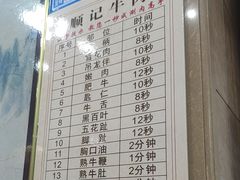 顺记牛
教您一秒成涮肉高手
序号 部位 时间
1 匙柄 10秒
2 雪花肉 8秒
3 吊龙伴 8秒
4 嫩肉 10秒
5 肥牛 10秒
6 匙仁 8秒
7 牛舌 8秒
8 黑百叶 12秒
9 五花趾 12秒
10 脚趾 12秒
11 胸口油 2分钟
12 熟牛鞭 1分钟
13 熟牛肚 2分钟